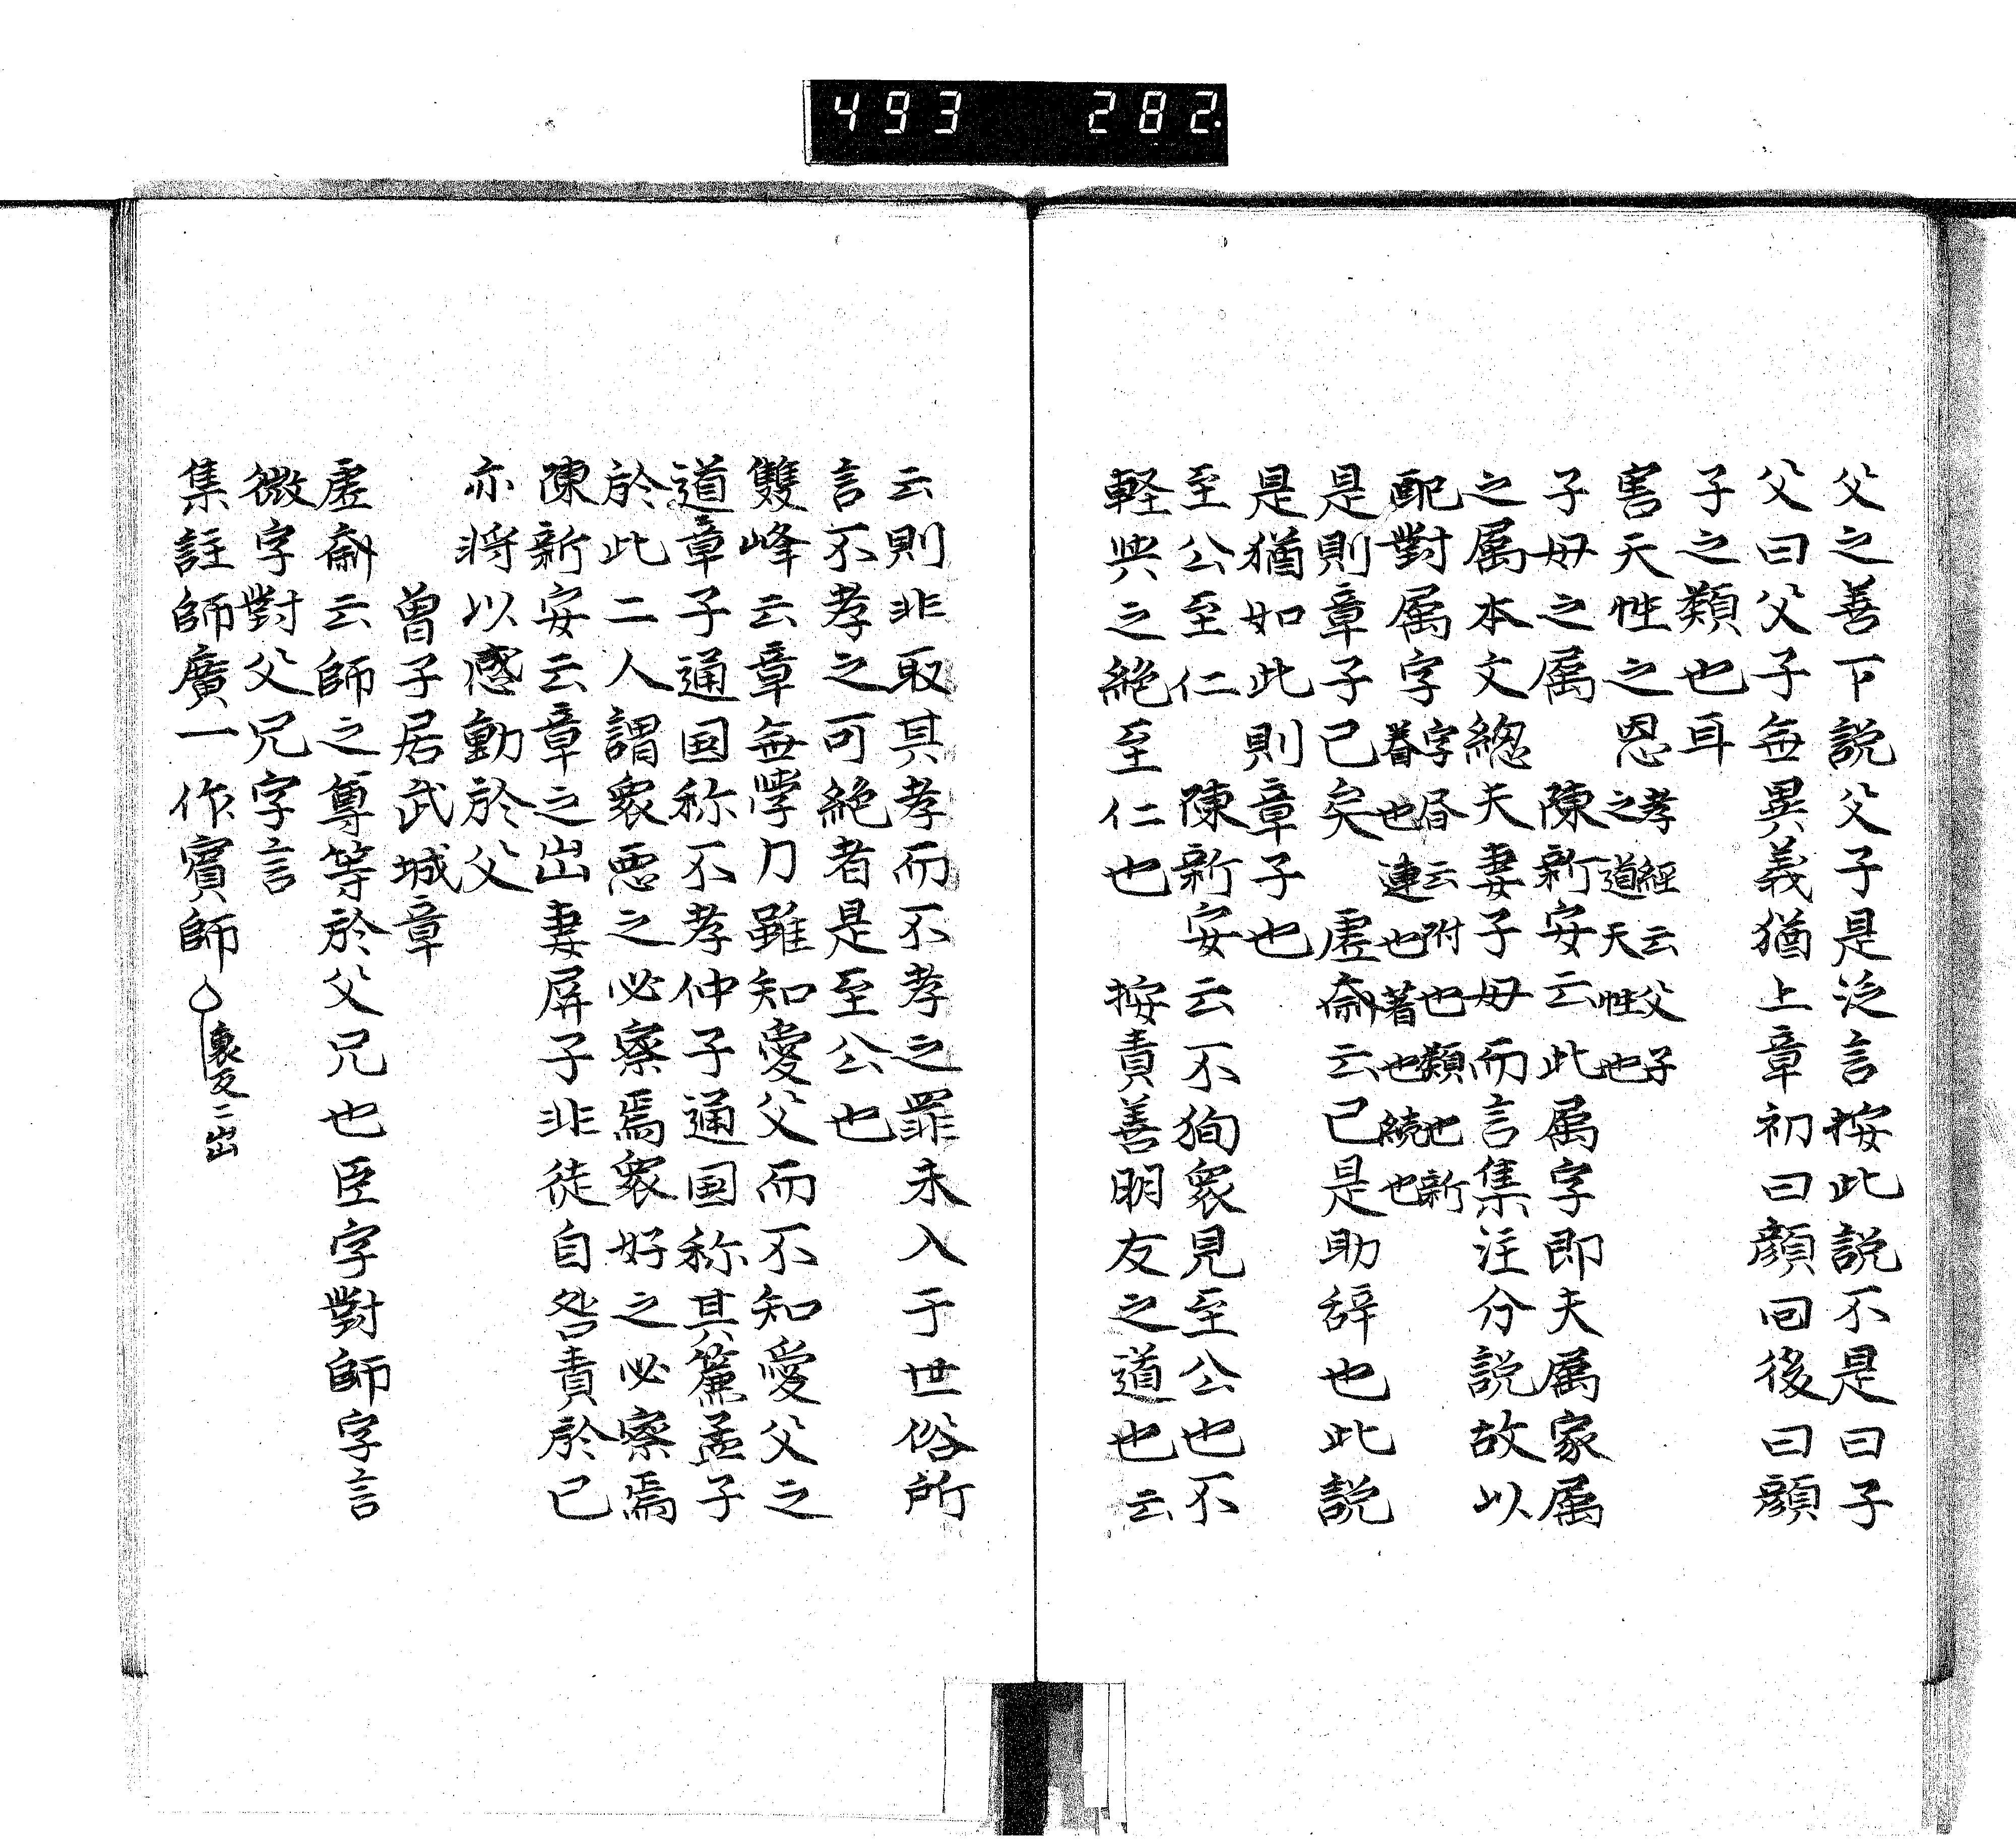 493 282
父之善下説父子是泛言按此説不是曰子
父曰父子無異義猶上章初曰顔回後曰顔
子之類也耳
害天性之恩孝経云父子之道天性也
子母之属 陳新安云此属字即夫属家属
之属本文總夫妻子母而言集注分説故以
配對属字字㫺云附也類也新眷也連也著也続也
是則章子已矣 虚斎云已是助辞也此説
是猶如此則章子也
至公至仁 陳新安云不狥衆見至公也不
軽與之絶至仁也 按責善明友之道也云
云則非取其孝而不孝之罪未入于世俗所
言不孝之可絶者是至公也
雙峰云章無学力雖知愛父而不知愛父之
道章子通国称不孝仲子通国称其簾孟子
於此二人謂衆悪之必察焉衆好之必察焉
陳新安云章之出妻屏子非徒自咎責於己
亦将以感動於父
曽子居武城章
虚斎云師之尊等於父兄也臣字對師字言
微字對父兄字言
集註師廣一作賓師 裏文二出